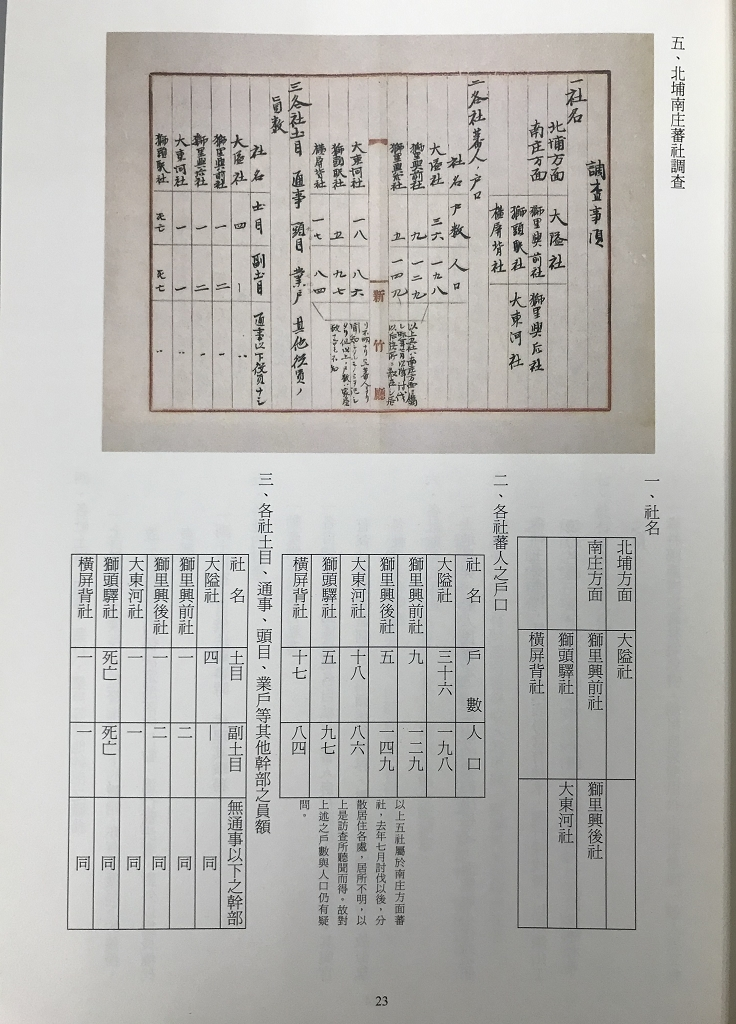 五、北埔南庄蕃社調查
調查事項
一社名
北埔方面 大隘社
南庄方面 獅里興前社 獅里興后社
獅頭駅社 大東河社
橫屏背社
二各社蕃人ノ戶口
社名 戶數 人口
大隘社 三六 一九八
獅里興前社 九 一二九
獅里興后社 五 一四九
新竹廳
大東河社 一八 八六
獅頭駅社 五 九七
橫屏背社 一七 八四
三各社土目 通事 頭目 業戶 其他役員ノ
員數
社名 土目 副土目 通事以下役員ナシ
大隘社 四 一 〃
獅里興前社 一 二 〃
獅里興后社 一 二 〃
大東河社 一 一 〃
獅頭駅社 死亡 死亡 〃
一、社名
北埔方面 大隘社
南庄方面 獅里興前社 獅里興後社
獅頭驛社 大東河社
橫屏背社
二、各社蕃人之戶口
社名 戶數 人口
大隘社 三十六 一九八
獅里興前社 九 一二九
獅里興後社 五 一四九
大東河社 十八 八六
獅頭驛社 五 九七
橫屏背社 十七 八四
以上五社屬於南庄方面蕃
社，去年七月討伐以後，分
散居住各處，居所不明，以
上是訪查所聽聞而得。故對
上述之戶數與人口仍有疑
問。
三、各社土目、通事、頭目、業戶等其他幹部之員額
社名 土目 副土目 無通事以下之幹部
大隘社 四 — 同
獅里興前社 一 二 同
獅里興後社 一 二 同
大東河社 一 一 同
獅頭驛社 死亡 死亡 同
橫屏背社 一 一 同
23